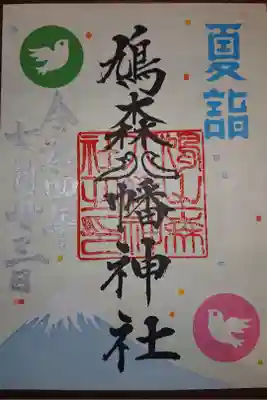 夏詣
鳩森八幡神社
令和四年
七月廿三日